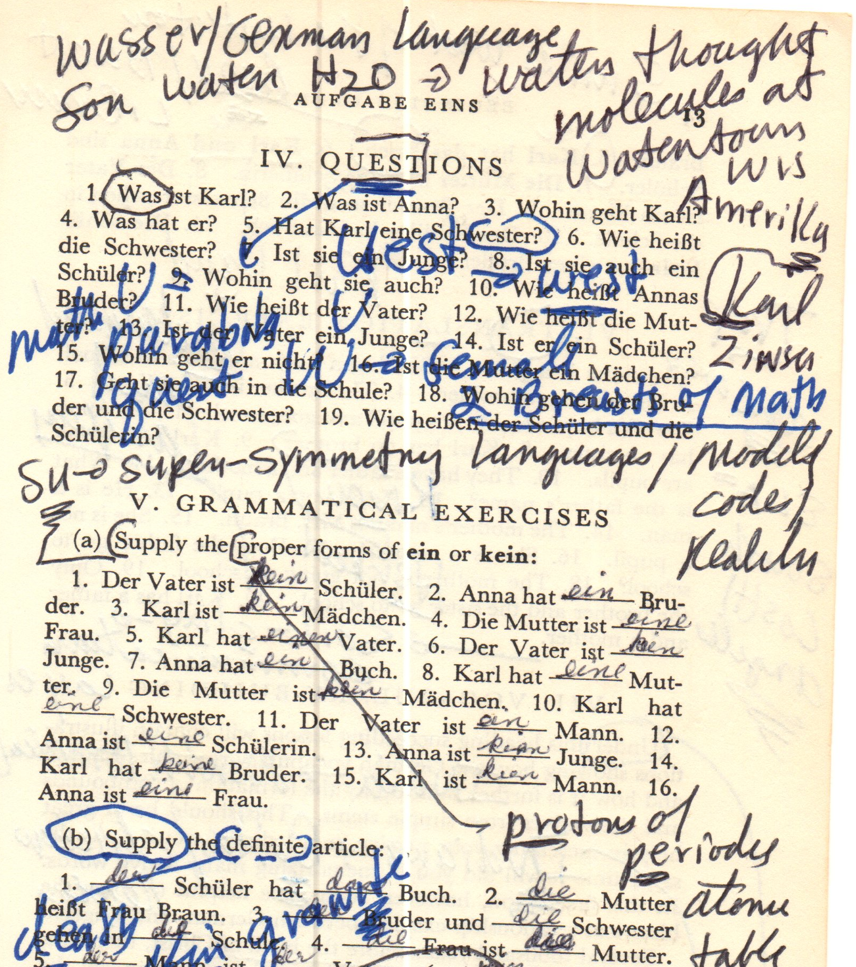 wasser/German language
Son water H2O → waters thought
AUFGABE EINS
13
molecules at
Watertown
WIS
Amerika
IV. QUESTIONS
1. Was ist Karl? 2. Was ist Anna? 3. Wohin geht Karl?
4. Was hat er? 5. Hat Karl eine Schwester? 6. Wie heißt
die Schwester? 7. Ist sie ein Junge? 8. Ist sie auch ein
Schüler? 9. Wohin geht sie auch? 10. Wie heißt Annas
Bruder? 11. Wie heißt der Vater? 12. Wie heißt die Mut-
ter? 13. Ist der Vater ein Junge? 14. Ist er ein Schüler?
15. Wohin geht er nicht? 16. Ist die Mutter ein Mädchen?
17. Geht sie auch in die Schule? 18. Wohin gehen der Bru-
der und die Schwester? 19. Wie heißen der Schüler und die
Schülerin?
West → west
U → U
math parabola
quest W → female
2 Breasts of Math
Karl
Zinser
SU→ super-symmetry languages/models
codes/
Reality
V. GRAMMATICAL EXERCISES
(a) Supply the proper forms of ein or kein:
1. Der Vater ist kein Schüler. 2. Anna hat ein Bru-
der. 3. Karl ist kein Mädchen. 4. Die Mutter ist eine
Frau. 5. Karl hat einen Vater. 6. Der Vater ist kein
Junge. 7. Anna hat ein Buch. 8. Karl hat eine Mut-
ter. 9. Die Mutter ist kein Mädchen. 10. Karl hat
eine Schwester. 11. Der Vater ist ein Mann. 12.
Anna ist eine Schülerin. 13. Anna ist kein Junge. 14.
Karl hat keine Bruder. 15. Karl ist kien Mann. 16.
Anna ist eine Frau.
protons of
periodic
atomic
table
(b) Supply the definite article:
1. der Schüler hat das Buch. 2. die Mutter
heißt Frau Braun. 3. Bruder und die Schwester
gehen in die Schule. 4. die Frau ist die Mutter.
5. der Mann ist der